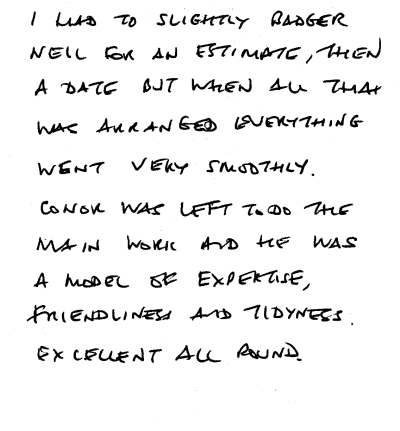 I HAD TO SLIGHTLY BADGER
NEIL FOR AN ESTIMATE, THEN
A DATE BUT WHEN ALL THAT
WAS ARRANGED EVERYTHING
WENT VERY SMOOTHLY.
CONOR WAS LEFT TO DO THE
MAIN WORK AND HE WAS
A MODEL OF EXPERTISE,
FRIENDLINESS AND TIDYNESS.
EXCELLENT ALL ROUND.